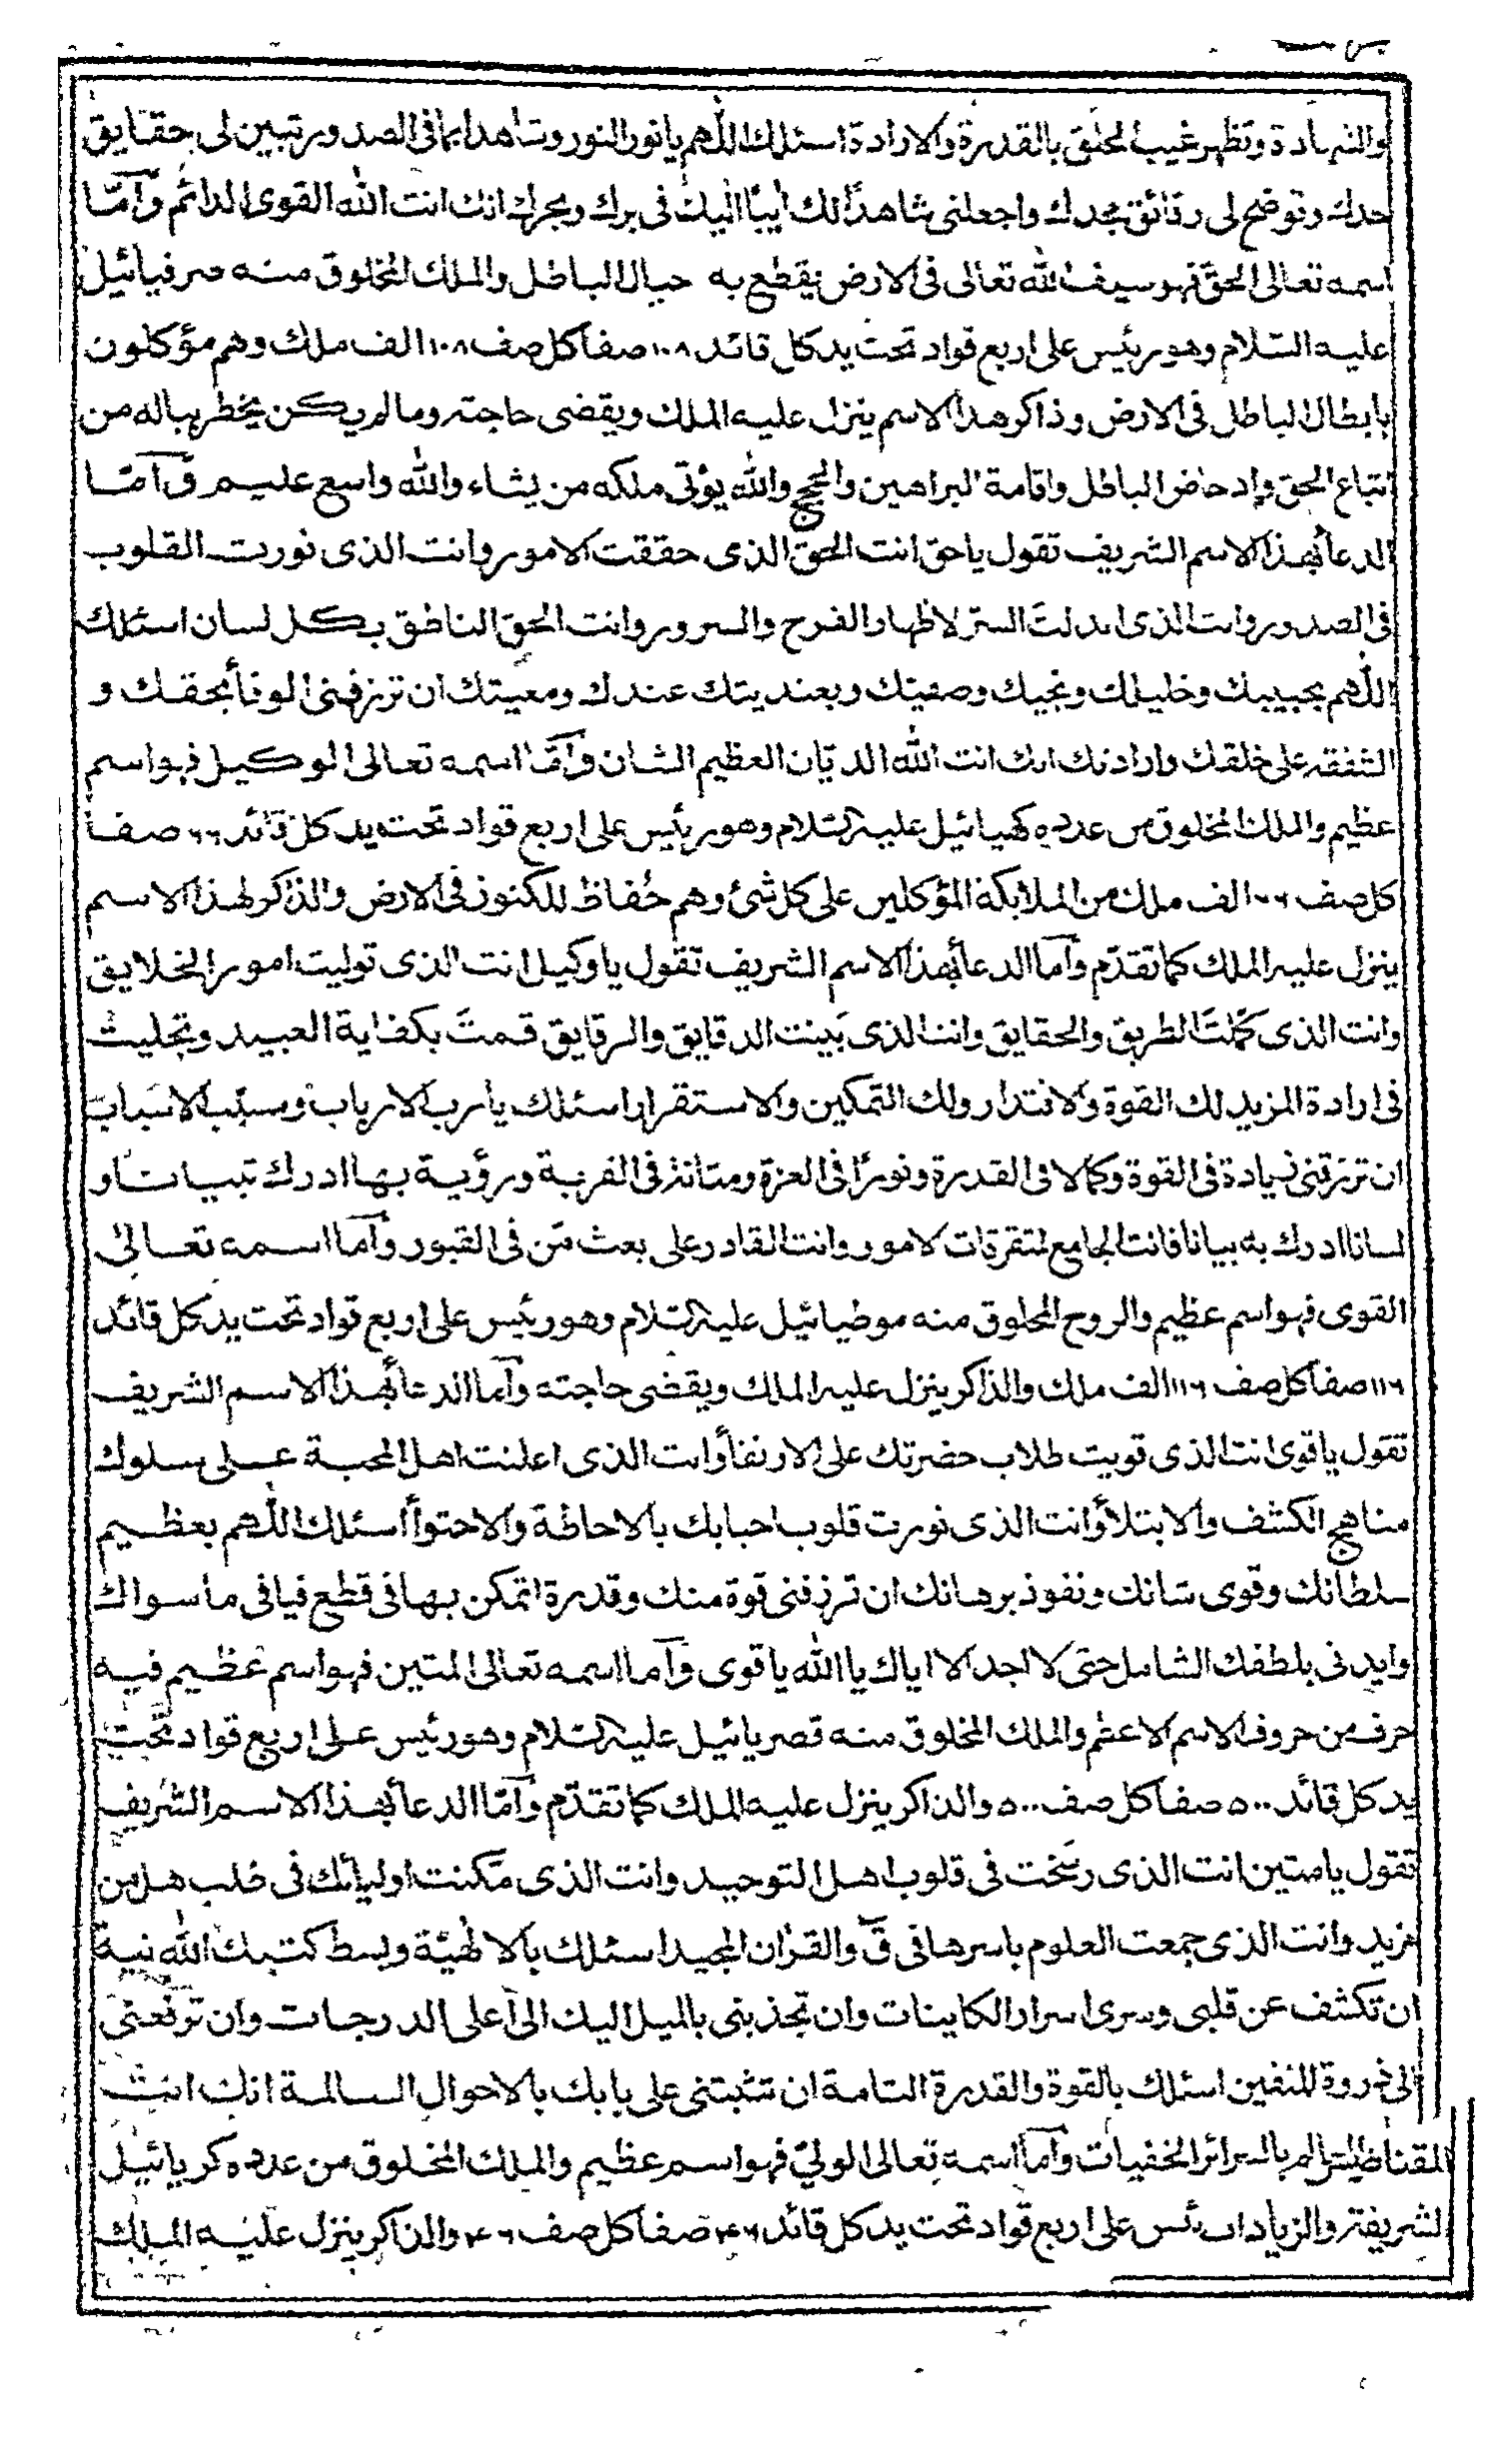 والشهادة وتظهر غيب الخلق بالقدرة والارادة اسئلك اللهم يا نور النور وشاهدا بما فى الصدور تبين لى حقايق
حدك وتوضح لى رقائق مجدك واجعلنى شاهدًا لك ايبًا اليك فى برك وبحرك انك انت الله القوى الدائم وأمّا
اسمه تعالى الحق فهو سيف الله تعالى فى الارض يقطع به حبال الباطل والملك المخلوق منه صرفيائيل
عليه السّلام وهو رئيس على اربع قواد تحت يد كل قائد ١٠٨ صفا كل صف ١٠٨ الف ملك وهم مؤكلون
بابطال الباطل فى الارض وذاكر هذا الاسم ينزل عليه الملك ويقضى حاجته وما لم يكن يخطر بباله من
اتباع الحق وادحاض الباطل واقامة البراهين والحجج والله يؤتى ملكه من يشاء والله واسع عليم وأمّا
الدعأ بهذا الاسم الشريف تقول يا حق انت الحق الذى حققت الامور وانت الذى نورت القلوب
فى الصدور وانت الذى ابدلت الستر لاظهار الفرح والسرور وانت الحق الناطق بكل لسان اسئلك
اللهم بحبيبك وخليلك ونجيك وصفيك وبعنديتك عندك ومعيتك ان ترزقنى الوفأ بحقك و
الشفقه على خلقك وارادتك انك انت الله الديّان العظيم الشان وأمّا اسمه تعالى الوكيل فهو اسم
عظيم والملك المخلوق من عدده كهيائيل عليه السّلام وهو رئيس على اربع قواد تحت يد كل قائد ٦٦ صفا
كل صف ٦٦ الف ملك من الملائكة المؤكلين على كل شئ وهم حُفاظ للكنوز فى الارض والذاكر لهذا الاسم
ينزل عليه الملك كما تقدّم وأما الدعأ بهذا الاسم الشريف تقول يا وكيل انت الذى توليت امور الخلايق
وانت الذى كمّلتَ الطريق والحقايق وانت الذى بَينت الدقايق والرقايق قمتَ بكفاية العبيد وتجليت
فى ارادة المزيد لك القوة والاقتدار ولك التمكين والاستقرار اسئلك يا رب الارباب ومسبّب الاسباب
ان ترزقنى زيادة فى القوة وكمالا فى القدرة ونورًا فى العزة ومتانة فى القربة ورؤية بها ادرك تبيانا و
لسانا ادرك به بيانا فانت الجامع لمتفرقات الامور وانت القادر على بعث مَن فى القبور وأما اسمه تعالى
القوى فهو اسم عظيم والروح المخلوق منه موطيائيل عليه السّلام وهو رئيس على اربع قواد تحت يد كل قائد
١١٦ صفا كل صف ١١٦ الف ملك والذاكر ينزل عليه الملك ويقضى حاجته وأما الدعأ بهذا الاسم الشريف
تقول يا قوى انت الذى قويت طلاب حضرتك على الارتفأ وانت الذى اعلنت اهل المحبة على سلوك
مناهج الكشف والابتلأ وانت الذى نورت قلوب احبابك بالاحاطة والاحتوأ اسئلك اللهم بعظيم
سلطانك وقوى شانك ونفوذ برهانك ان ترزقنى قوة منك وقدرة اتمكن بها فى قطع فيافى ما سواك
وايدنى بلطفك الشامل حتى لا اجد الا اياك يا الله يا قوى وأما اسمه تعالى المتين فهو اسم عظيم فيه
حرف من حروف الاسم الاعظم والملك المخلوق منه قصريائيل عليه السّلام وهو رئيس على اربع قواد تحت
يد كل قائد ٥٠٠ صفا كل صف ٥٠٠ والذاكر ينزل عليه الملك كما تقدّم وأمّا الدعأ بهذا الاسم الشريف
تقول يا متين انت الذى رسَخت فى قلوب اهل التوحيد وانت الذى مكّنت اوليائك فى طلب هل من
مزيد وانت الذى جمعت العلوم باسرها فى ق والقرأن المجيد اسئلك بالالهيّة وبسط كتبك الله نية
ان تكشف عن قلبى وسرى اسرار الكاينات وان تجذبنى بالميل اليك الى أعلى الدرجات وان ترفعنى
الى ذروة اسئلك بالقوة والقدرة التامة ان تثبتنى على بابك بالاحوال السالمة انك انت
بالسرائر الخفيات وأما اسمه تعالى الولىّ فهو اسم عظيم والملك المخلوق من عدده كريائيل
على اربع قواد تحت يد كل قائد ٤٦ صفا كل صف ٤٦ والذاكر ينزل عليه الملك